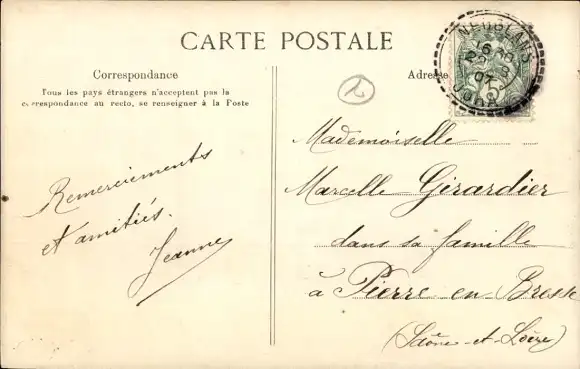 CARTE POSTALE
Correspondance
Tous les pays étrangers n'acceptent pas la
correspondance au recto, se renseigner à la Poste
Remerciements
et amitiés.
Jeanne
Adresse
NEUBLANS
JURA
Mademoiselle
Marcelle Girardier
dans sa famille
à Pierre en Bresse
(Saône-et-Loire)